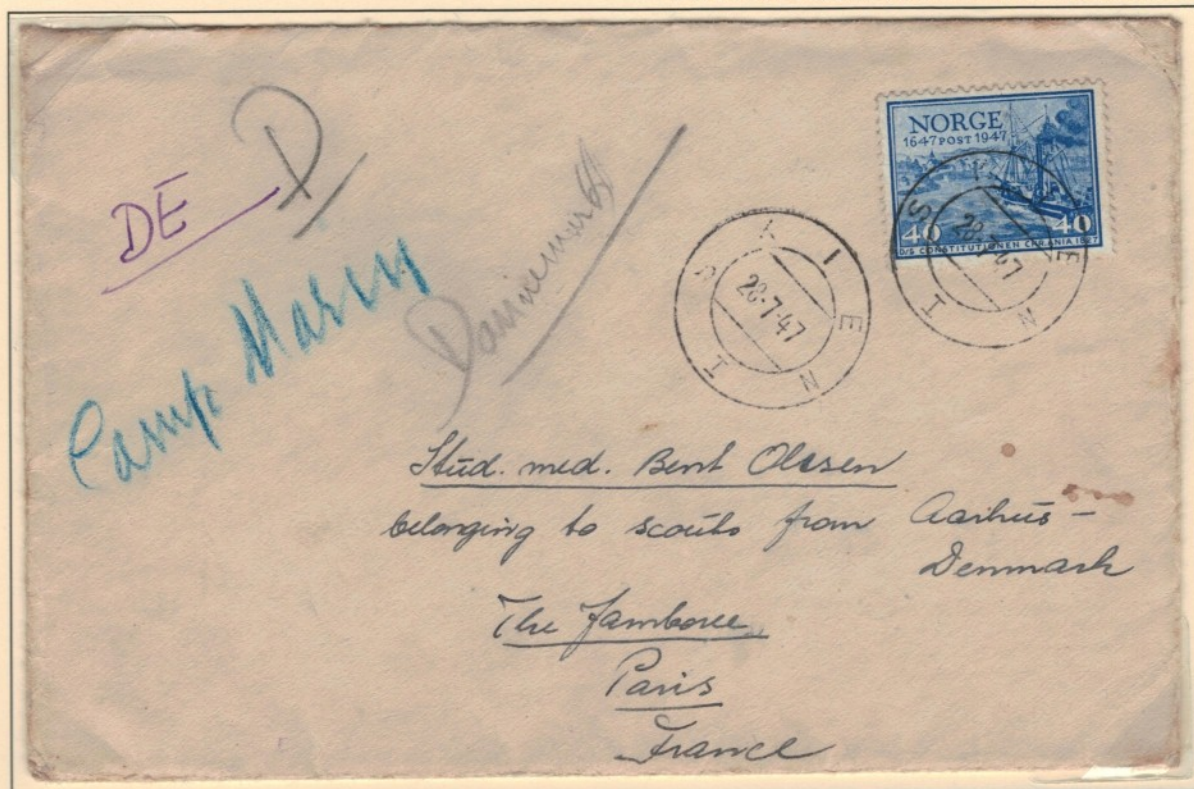 D
DE
Camp Marny
Dannemark
NORGE
1647 POST 1947
40 40
D/S CONSTITUTIONEN CHR.ANIA 1827
28-7-47
28-7-47
Stud. med. Bent Olesen
belonging to scouts from Aarhus -
Denmark
The Jamboree
Paris
France